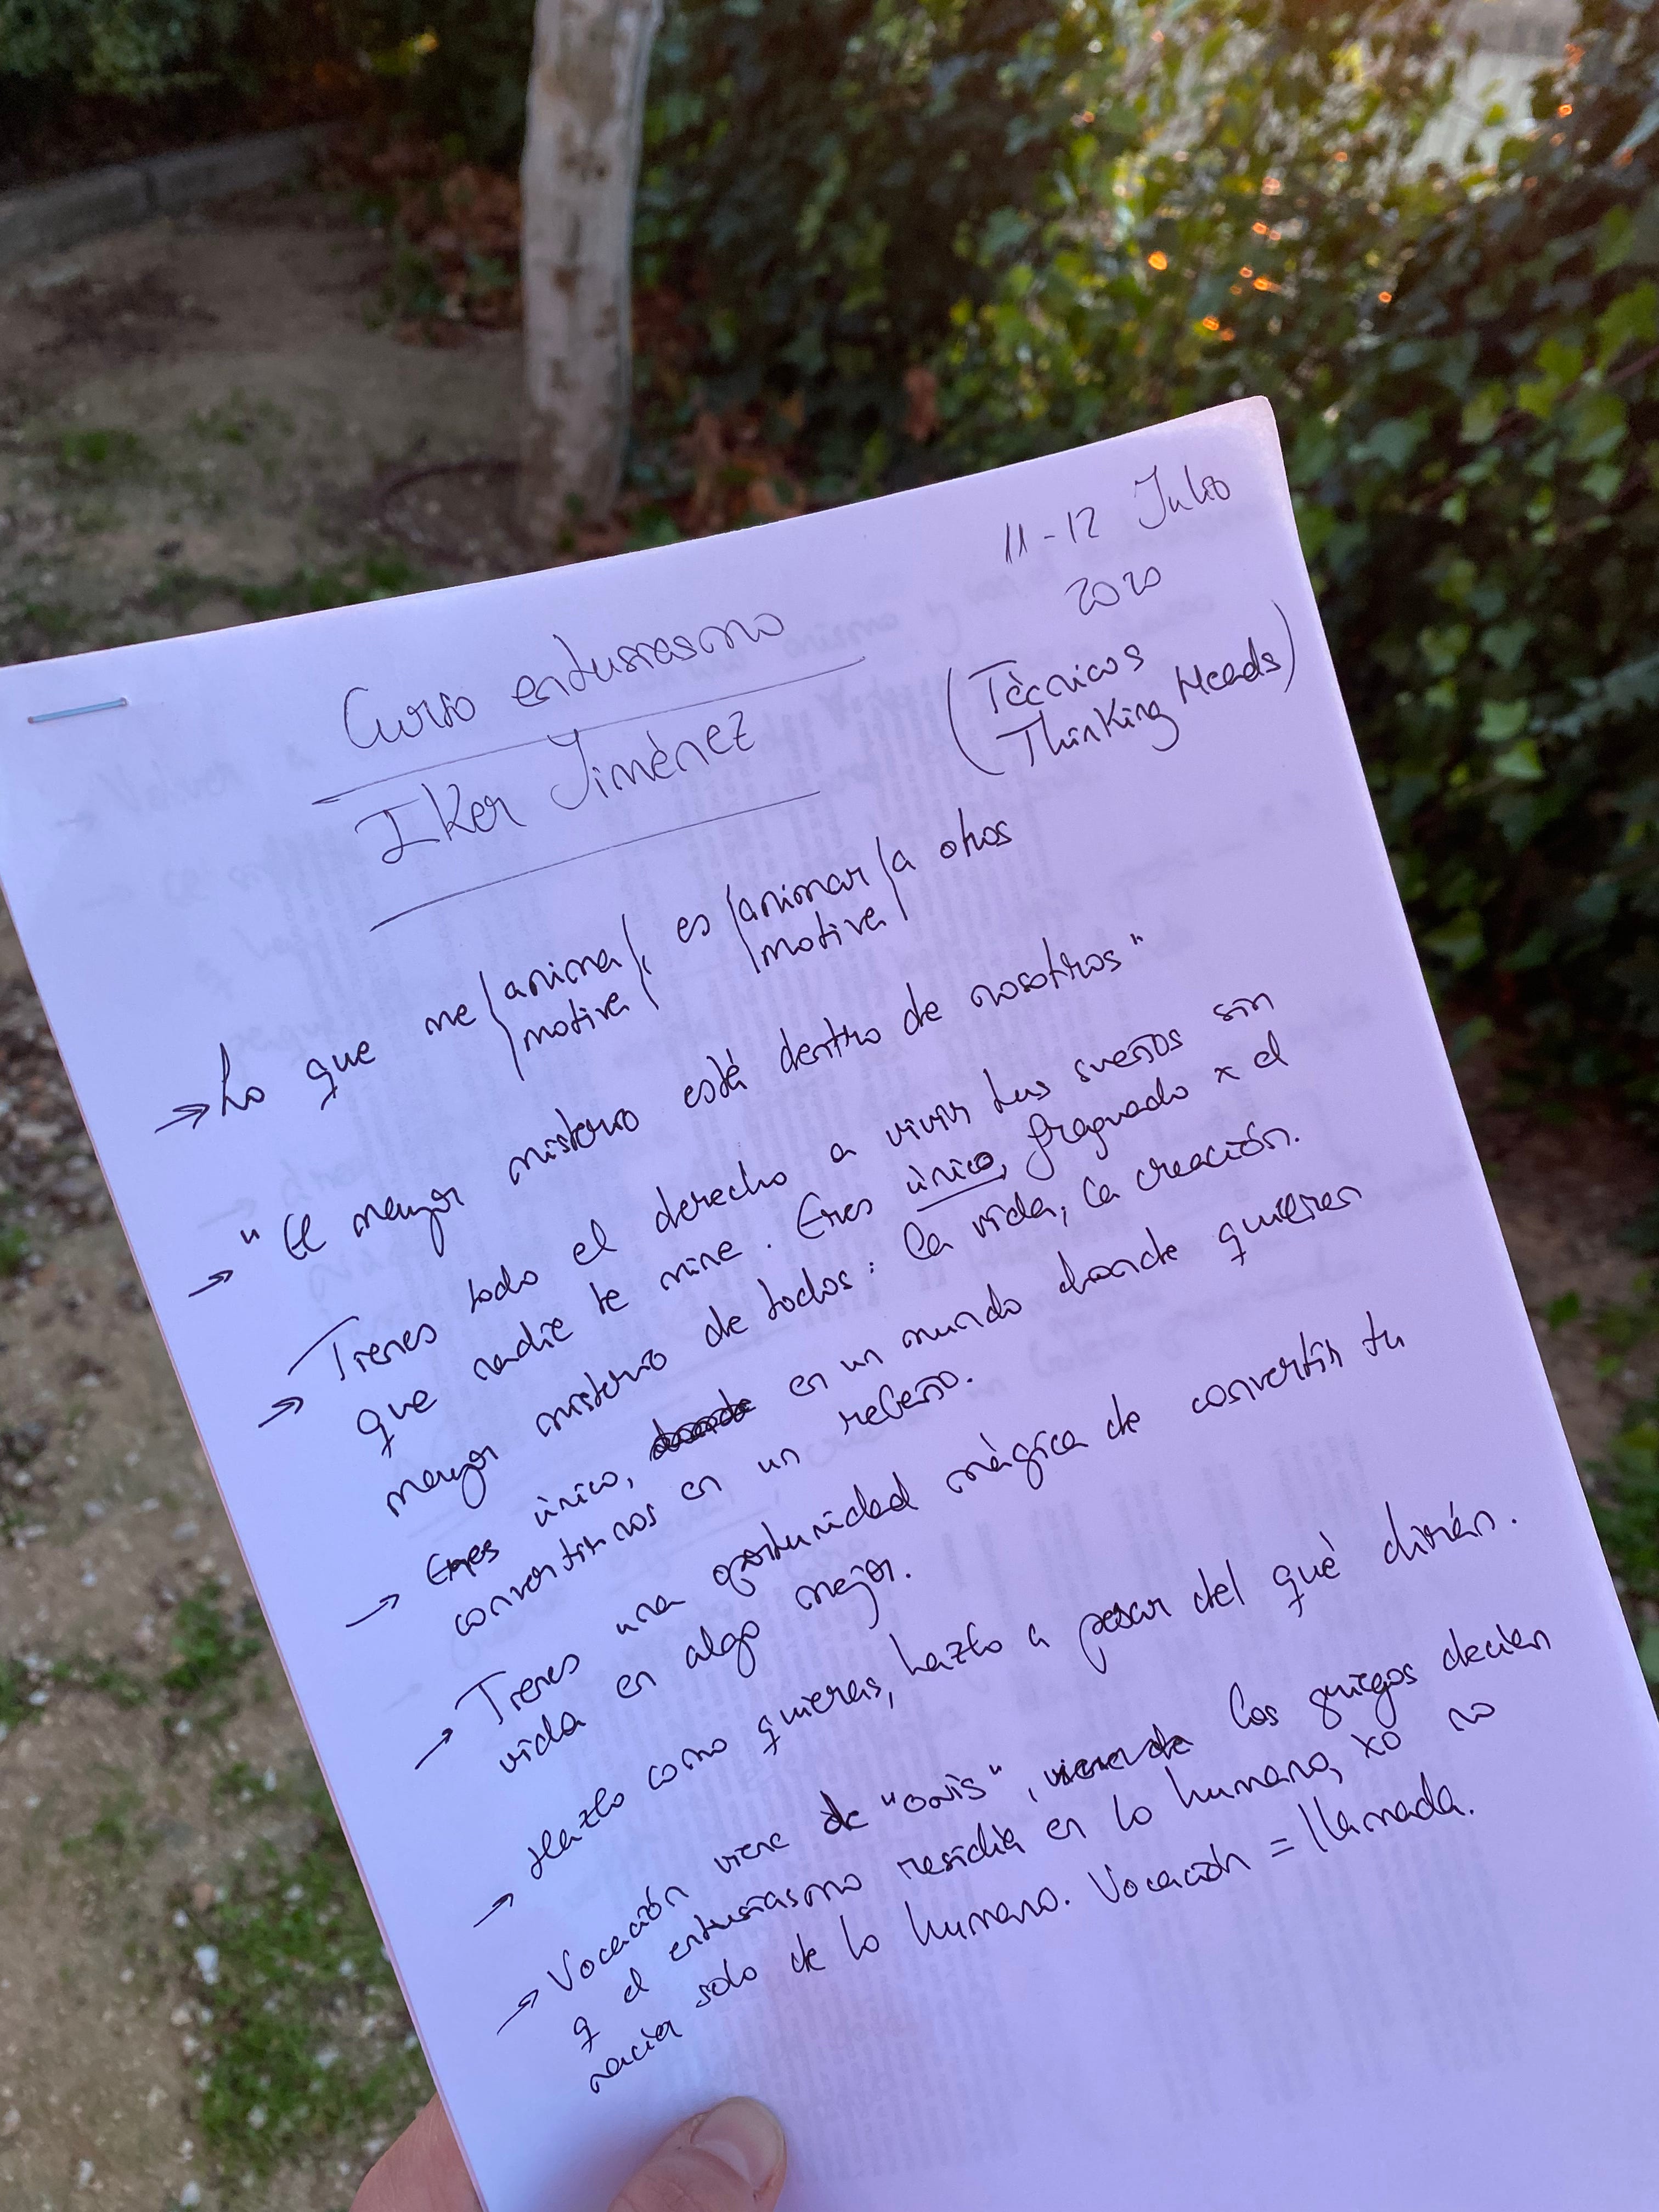 11-12 Julio
2020
Curso entusiasmo
(Técnicos
Thinking Heads)
Iker Jiménez
→ Lo que me (anima/motiva), es (animar/motivar) a otros
→ "El mayor misterio está dentro de nosotros"
→ Tienes todo el derecho a vivir tus sueños sin
que nadie te mine. Eres único, fraguado x el
mayor misterio de todos: la vida, la creación.
→ Eres único, en un mundo donde quieren
convertirnos en un rebaño.
→ Tienes una oportunidad mágica de convertir tu
vida en algo mejor.
→ Hazlo como quieras, hazlo a pesar del qué dirán.
→ Vocación viene de " ", los griegos decían
q el entusiasmo residía en lo humano, xo no
nacía solo de lo humano. Vocación = llamada.